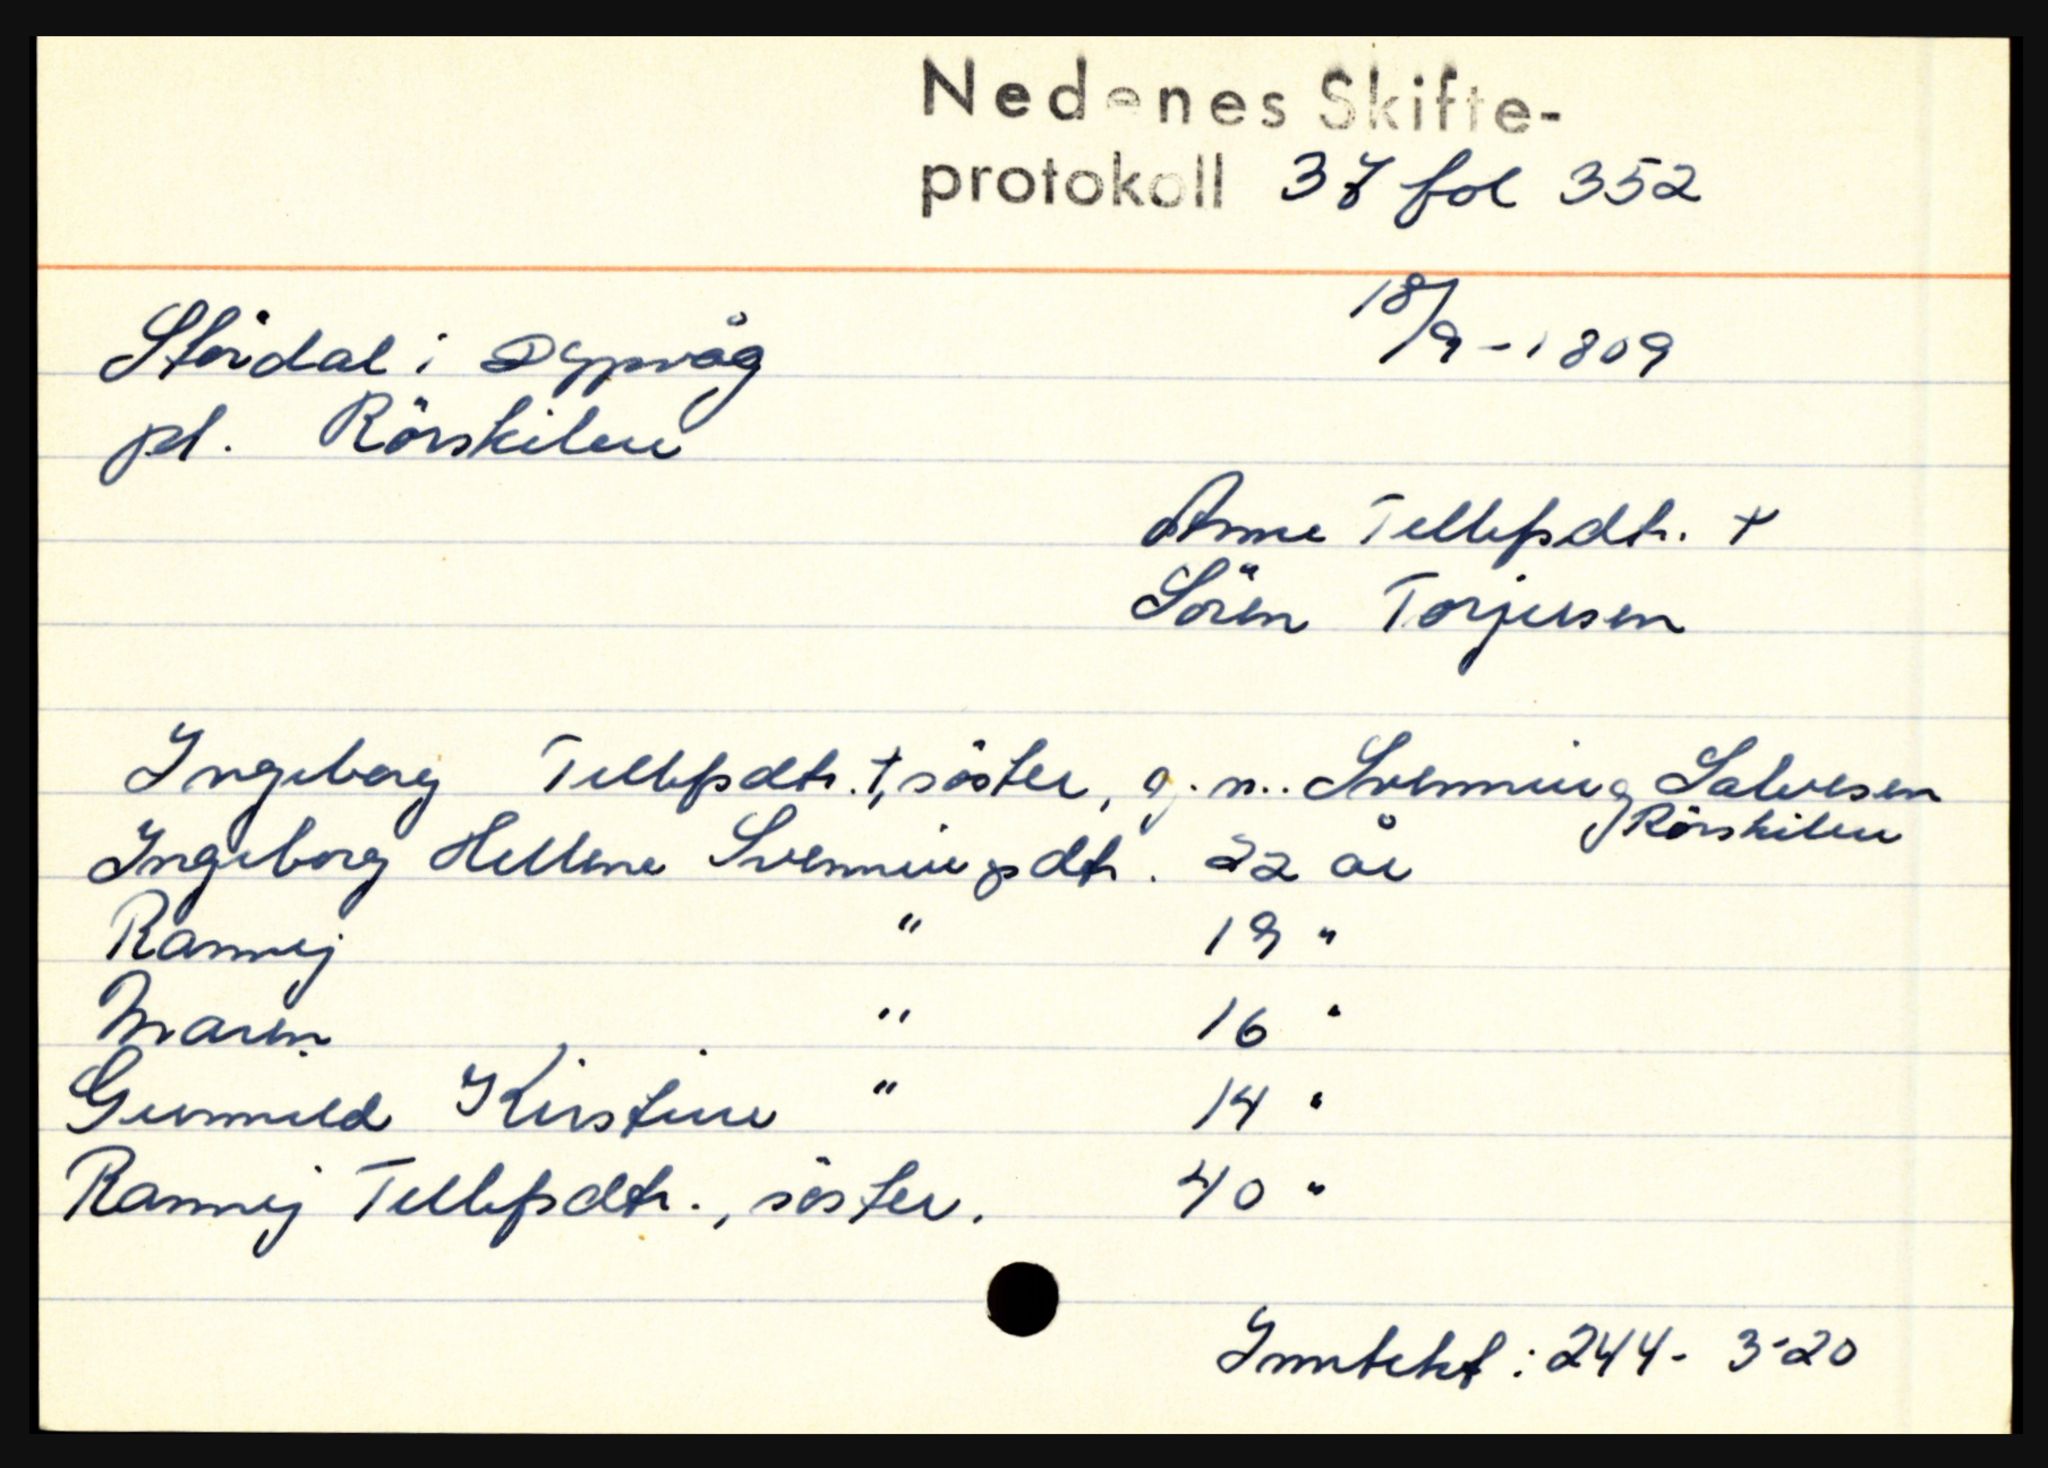 Nedenes Skifte-
protokoll 37 fol 352
18/9-1809
Stördal i Dypvåg
pl. Rörskilen
Anne Tellefsdtr. +
Sören Torjusen
Ingeborg Tellefsdtr. +, söster, g. m. Svenning Salvesen
Rörskilen
Ingeborg Hellene Svenningsdtr. 22 år
Rannej " 19 "
Maren " 16 "
Gunnild Kirstine " 14 "
Rannej Tellefsdtr., söster. 40 "
Inntekt: 244- 3-20